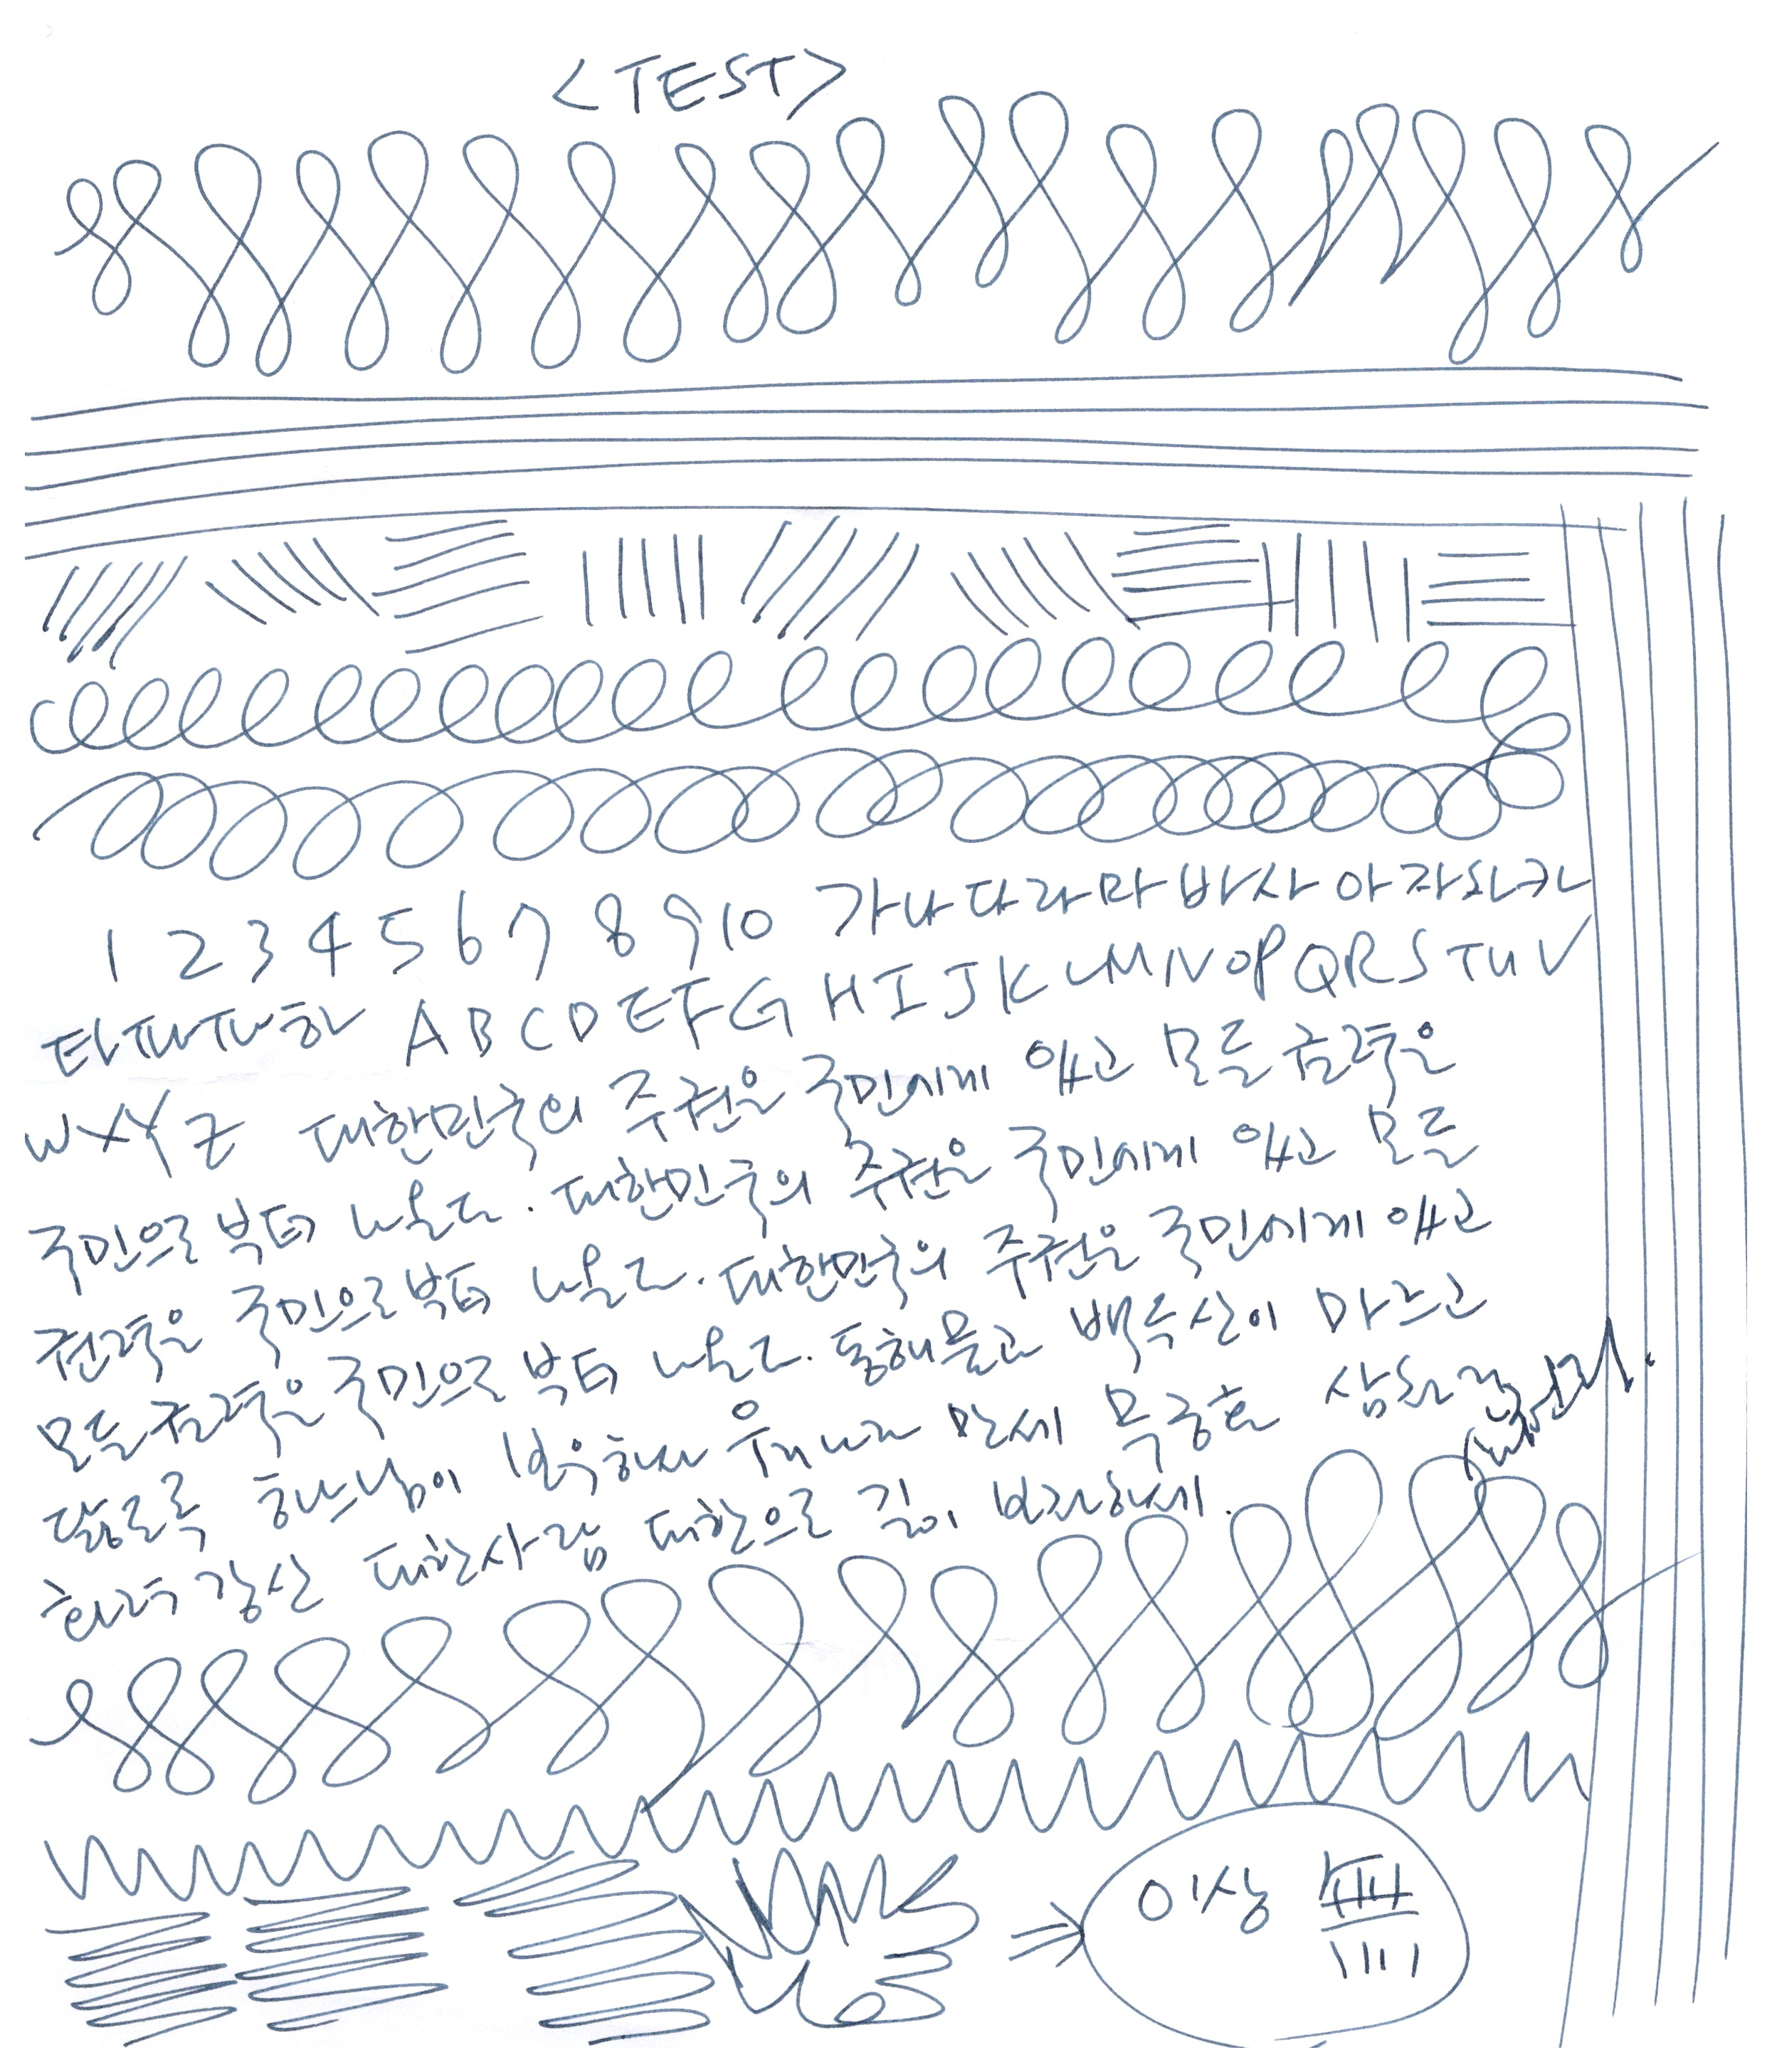 <TEST>
1 2 3 4 5 6 7 8 9 10 가 나 다 라 마 바 사 아 자 차 카
타 파 하 A B C D E F G H I J K L M N O P Q R S T U V
W X Y Z 대한민국의 주권은 국민에게 있고 모든 권력은
국민으로 부터 나온다. 대한민국의 주권은 국민에게 있고 모든
권력은 국민으로 부터 나온다. 대한민국의 주권은 국민에게 있고
모든 권력은 국민으로 부터 나온다. 동해물과 백두산이 마르고
닳도록 하느님이 보우하사 우리나라 만세 무궁화 삼천리
화려 강산 대한사람 대한으로 길이 보전하세.
이상 無